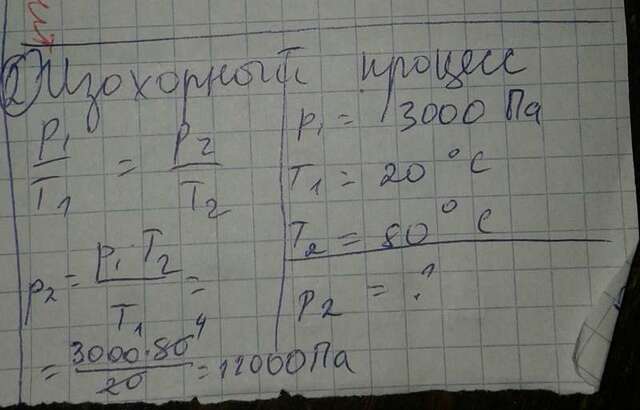 ② Изохорный процесс
p₁/T₁ = p₂/T₂
p₂ = p₁ T₂ / T₁ =
= 3000·80 4 / 20 = 12000 Па
p₁ = 3000 Па
T₁ = 20 °C
T₂ = 80 °C
p₂ = ?